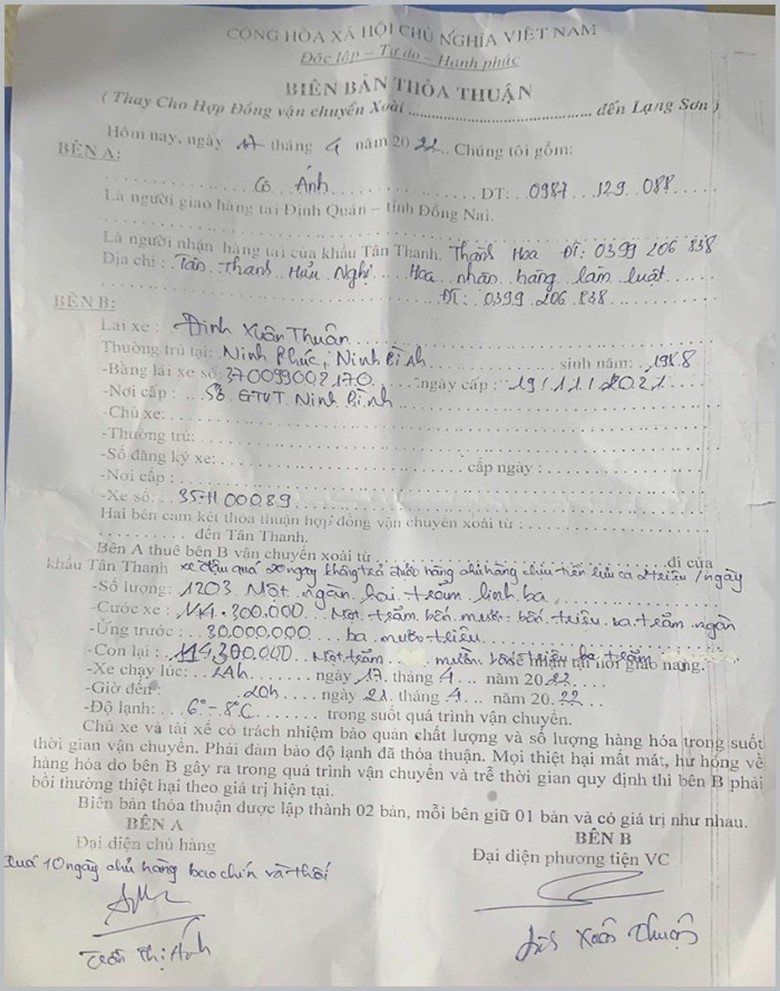 CỘNG HÒA XÃ HỘI CHỦ NGHĨA VIỆT NAM
Độc lập – Tự do – Hạnh phúc
BIÊN BẢN THỎA THUẬN
( Thay Cho Hợp Đồng vận chuyển Xoài .................................. đến Lạng Sơn )
Hôm nay, ngày 17 tháng 4 năm 2022.. Chúng tôi gồm:
BÊN A:
Cô Ánh ĐT: 0987 129 088
Là người giao hàng tại Định Quán – tỉnh Đồng Nai.
Là người nhận hàng tại cửa khẩu Tân Thanh. Thanh Hoa ĐT: 0399 206 838
Địa chỉ : Tân Thanh Hữu Nghị Hoa nhận hàng làm luật
ĐT: 0399 206 838
BÊN B:
Lái xe : Đinh Xuân Thuân
Thường trú tại: Ninh Phúc, Ninh Bình sinh năm:
-Bằng lái xe số: 370099002170 ngày cấp : 19/11/2021
-Nơi cấp : Sở GTVT Ninh Bình
-Chủ xe:
-Thường trú:
-Số đăng ký xe: cấp ngày :
-Nơi cấp :
-Xe số: 35H 00089
Hai bên cam kết thỏa thuận hợp đồng vận chuyển xoài từ :
đến Tân Thanh.
Bên A thuê bên B vận chuyển xoài từ đi cửa
khẩu Tân Thanh xe đậu quá 20 ngày không trả được hàng chủ hàng chịu tiền lưu ca 2 triệu / ngày
-Số lượng: 1203 Một ngàn hai trăm linh ba
-Cước xe : 114.300.000 Một trăm bốn mươi bốn triệu ba trăm ngàn
-Ứng trước : 30.000.000 ba mươi triệu
-Còn lại : 114,300.000 Một trăm mười bốn triệu ba trăm nhận tại nơi giao hàng.
-Xe chạy lúc: 24h ngày 17 tháng 4 năm 2022
-Giờ đến : 20h ngày 21 tháng 4 năm 2022
-Độ lạnh: 6° - 8°C trong suốt quá trình vận chuyển.
Chủ xe và tài xế có trách nhiệm bảo quản chất lượng và số lượng hàng hóa trong suốt
thời gian vận chuyển. Phải đảm bảo độ lạnh đã thỏa thuận. Mọi thiệt hại mất mát, hư hỏng về
hàng hóa do bên B gây ra trong quá trình vận chuyển và trễ thời gian quy định thì bên B phải
bồi thường thiệt hại theo giá trị hiện tại.
Biên bản thỏa thuận được lập thành 02 bản, mỗi bên giữ 01 bản và có giá trị như nhau.
BÊN A
Đại diện chủ hàng
Quá 10 ngày chủ hàng bao chín và thối
Trần Thị Ánh
BÊN B
Đại diện phương tiện VC
Xuân Thuận